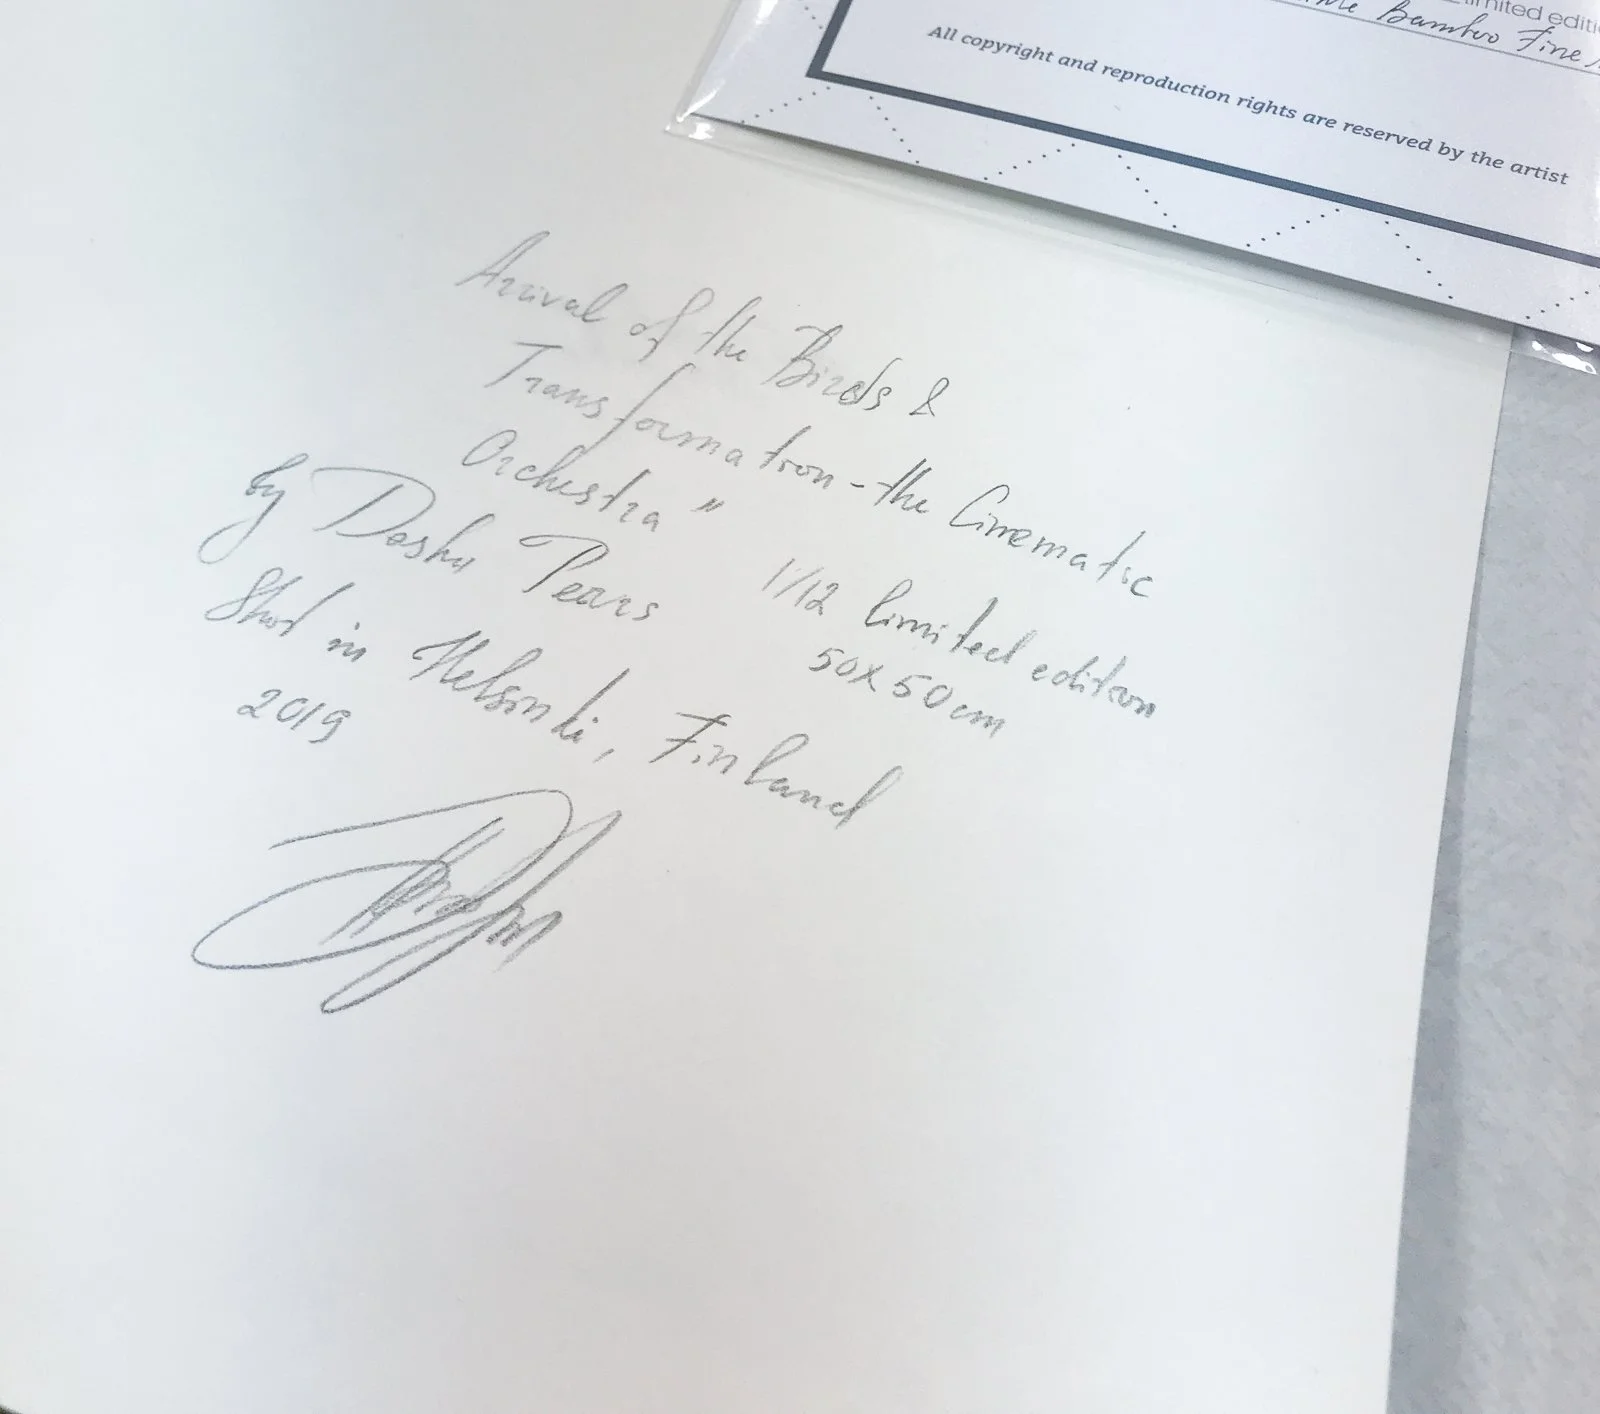 limited editi
Bamboo Fine
All copyright and reproduction rights are reserved by the artist
Arrival of the Birds &
Transformation - the Cinematic
Orchestra"
by Dasha Pears
1/12 limited edition
50x50cm
Shot in Helsinki, Finland
2019